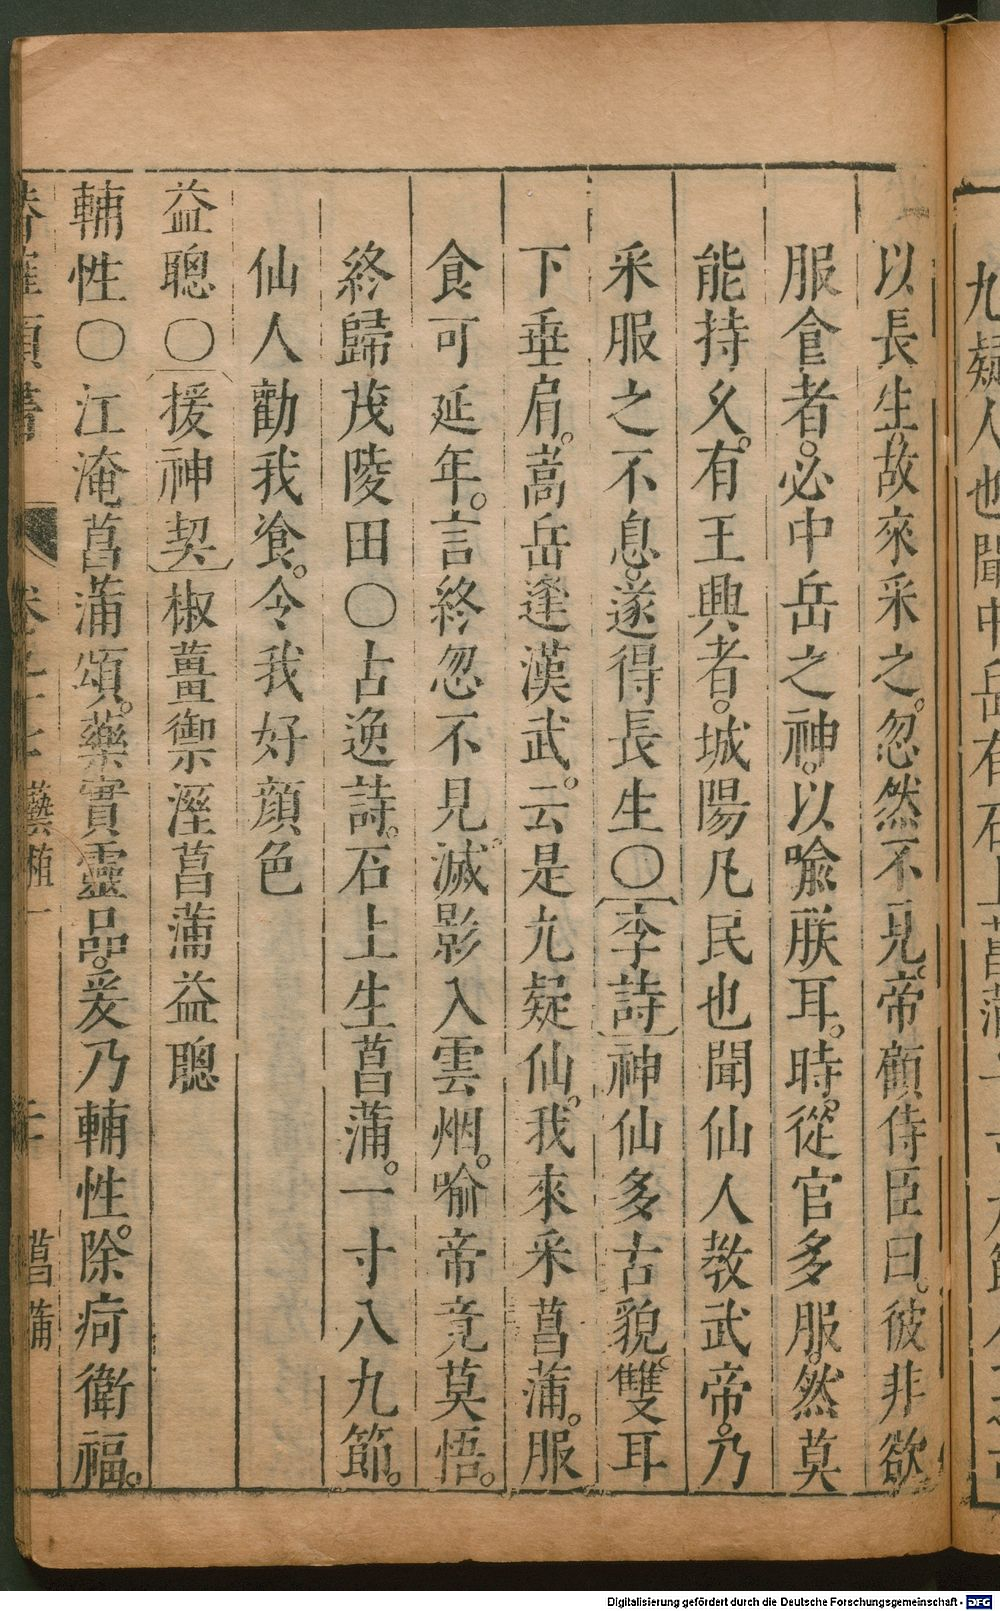 九疑人也聞中岳有石上菖蒲一寸九節
以長生故來采之。忽然不見。帝顧侍臣曰。彼非欲
服食者。必中岳之神。以喻朕耳。時從官多服。然莫
能持久。有王興者。城陽凡民也聞仙人教武帝。乃
采服之不息。遂得長生〇李詩神仙多古貌。雙耳
下垂肩。嵩岳逢漢武。云是九疑仙。我來采菖蒲。服
食可延年。言終忽不見。滅影入雲烟。喻帝竟莫悟。
終歸茂陵田〇古逸詩。石上生菖蒲。一寸八九節。
仙人勸我飡。令我好顔色
益聰〇援神契椒薑禦溼菖蒲益聰
輔性〇江淹菖蒲頌。藥實靈品。爰乃輔性。除痾衛福。
類書 卷之 藝植一 菖蒲
Digitalisierung gefördert durch die Deutsche Forschungsgemeinschaft - DFG